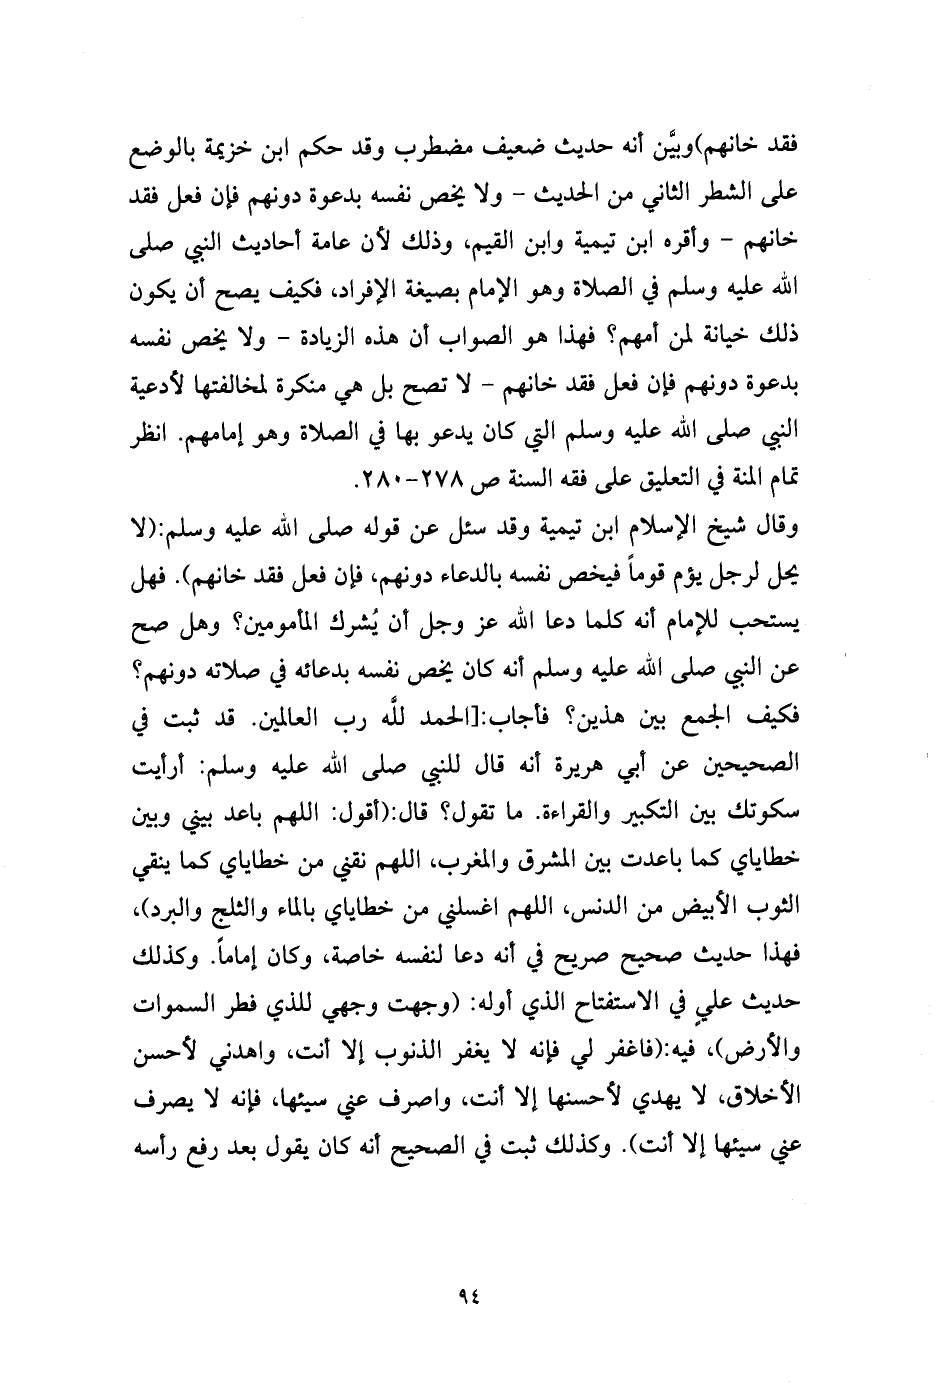 فقد خانهم)وبيَّن أنه حديث ضعيف مضطرب وقد حكم ابن خزيمة بالوضع
على الشطر الثاني من الحديث – ولا يخص نفسه بدعوة دونهم فإن فعل فقد
خانهم – وأقره ابن تيمية وابن القيم، وذلك لأن عامة أحاديث النبي صلى
الله عليه وسلم في الصلاة وهو الإمام بصيغة الإفراد، فكيف يصح أن يكون
ذلك خيانة لمن أمهم؟ فهذا هو الصواب أن هذه الزيادة – ولا يخص نفسه
بدعوة دونهم فإن فعل فقد خانهم – لا تصح بل هي منكرة لمخالفتها لأدعية
النبي صلى الله عليه وسلم التي كان يدعو بها في الصلاة وهو إمامهم. انظر
تمام المنة في التعليق على فقه السنة ص ٢٧٨-٢٨٠.
وقال شيخ الإسلام ابن تيمية وقد سئل عن قوله صلى الله عليه وسلم:(لا
يحل لرجل يؤم قوماً فيخص نفسه بالدعاء دونهم، فإن فعل فقد خانهم). فهل
يستحب للإمام أنه كلما دعا الله عز وجل أن يُشرك المأمومين؟ وهل صح
عن النبي صلى الله عليه وسلم أنه كان يخص نفسه بدعائه في صلاته دونهم؟
فكيف الجمع بين هذين؟ فأجاب:[الحمد للَّه رب العالمين. قد ثبت في
الصحيحين عن أبي هريرة أنه قال للنبي صلى الله عليه وسلم: أرأيت
سكوتك بين التكبير والقراءة. ما تقول؟ قال:(أقول: اللهم باعد بيني وبين
خطاياي كما باعدت بين المشرق والمغرب، اللهم نقني من خطاياي كما ينقي
الثوب الأبيض من الدنس، اللهم اغسلني من خطاياي بالماء والثلج والبرد)،
فهذا حديث صحيح صريح في أنه دعا لنفسه خاصة، وكان إماماً. وكذلك
حديث عليٍ في الاستفتاح الذي أوله: (وجهت وجهي للذي فطر السموات
والأرض)، فيه:(فاغفر لي فإنه لا يغفر الذنوب إلا أنت، واهدني لأحسن
الأخلاق، لا يهدي لأحسنها إلا أنت، واصرف عني سيئها، فإنه لا يصرف
عني سيئها إلا أنت). وكذلك ثبت في الصحيح أنه كان يقول بعد رفع رأسه
٩٤